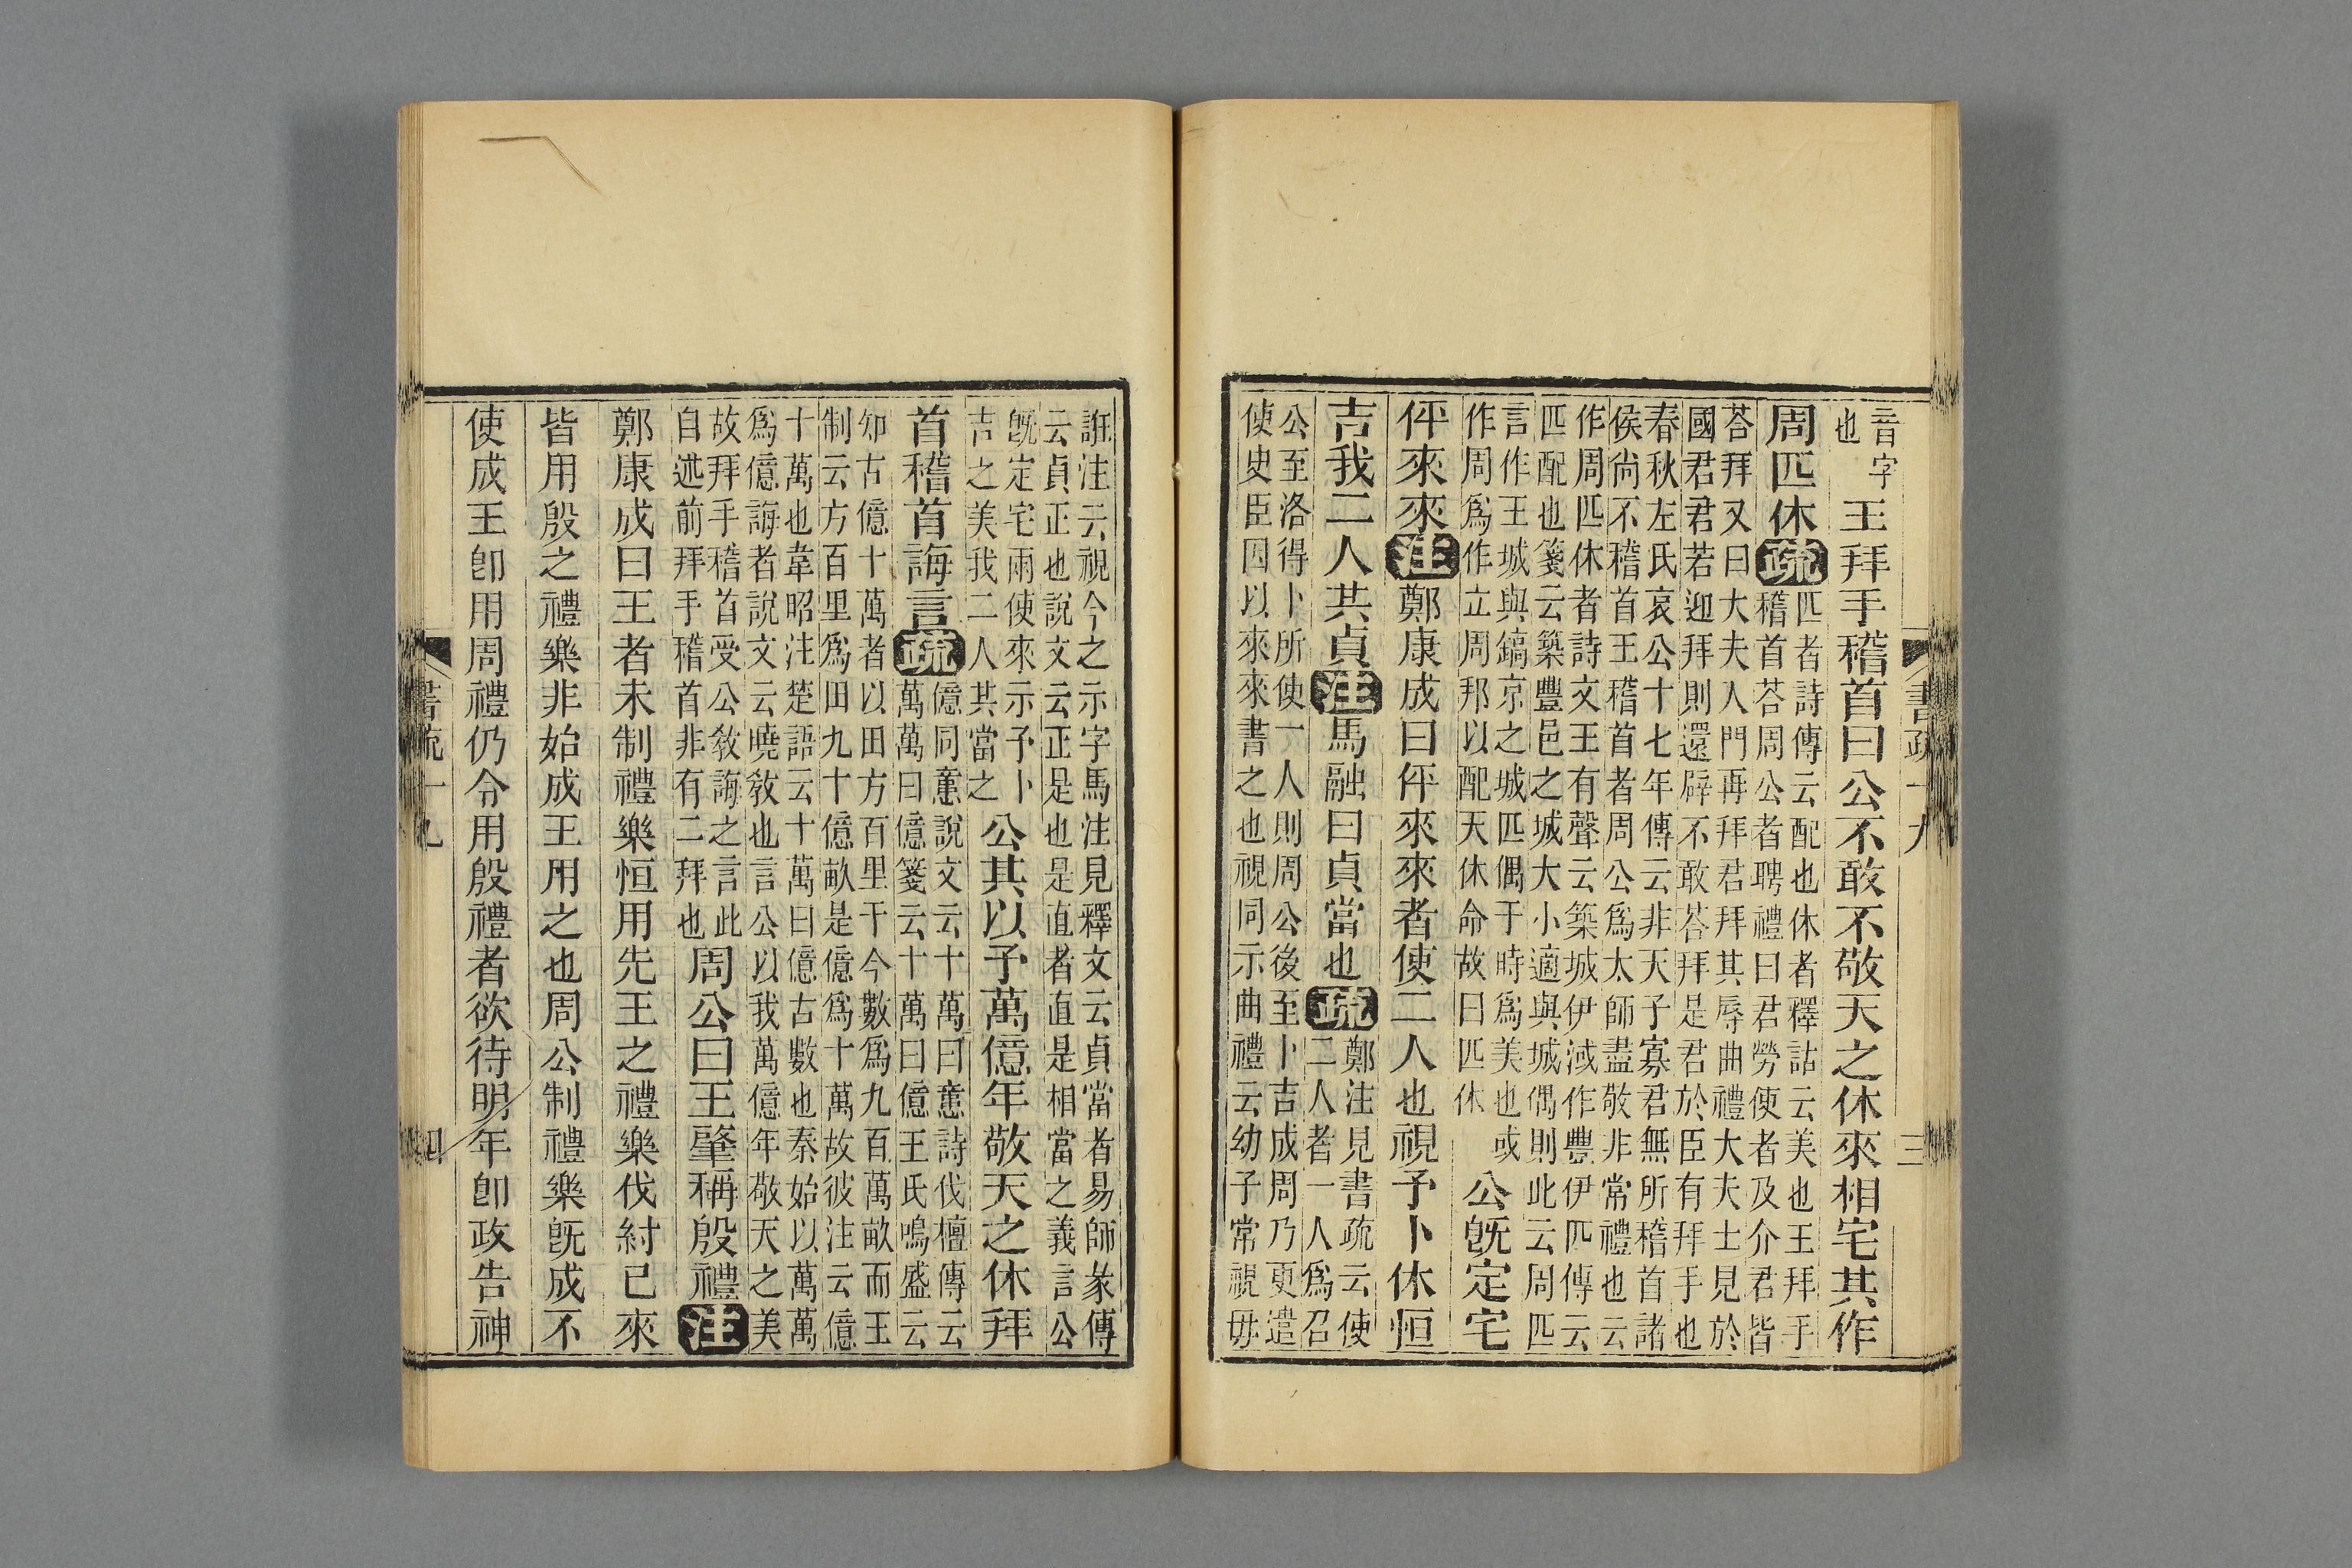 音字
也
王拜手稽首曰公不敢不敬天之休來相宅其作
周匹休疏
匹者詩傳云配也休者釋詁云美也王拜手
稽首荅周公者聘禮曰君勞使者及介君皆
荅拜又曰大夫入門再拜君拜其辱曲禮大夫士見於
國君君若迎拜則還辟不敢荅拜是君於臣有拜手也
春秋左氏哀公十七年傳云非天子寡君無所稽首諸
侯尙不稽首王稽首者周公爲太師盡敬非常禮也云
作周匹休者詩文王有聲云築城伊淢作豐伊匹傳云
匹配也箋云築豐邑之城大小適與城偶則此云周匹
言作王城與鎬京之城匹偶于時爲美也或
作周爲作立周邦以配天休命故曰匹休
公旣定宅
伻來來注鄭康成曰伻來來者使二人也視予卜休恒
吉我二人共貞注馬融曰貞當也疏
鄭注見書疏云使
二人者一人爲召
公至洛得卜所使一人則周公後至卜吉成周乃更遣
使史臣因以來來書之也視同示曲禮云幼子常視毋
書疏十九 三
誑注云視今之示字馬注見釋文云貞當者易師彖傳
云貞正也說文云正是也是直者直是相當之義言公
旣定宅兩使來示予卜
吉之美我二人其當之
公其以予萬億年敬天之休拜
首稽首誨言疏
億同薏說文云十萬曰薏詩伐檀傳云
萬萬曰億箋云十萬曰億王氏鳴盛云
知古億十萬者以田方百里于今數爲九百萬畝而王
制云方百里爲田九十億畝是億爲十萬故彼注云億
十萬也韋昭注楚語云十萬曰億古數也秦始以萬萬
爲億誨者說文云曉敎也言公以我萬億年敬天之美
故拜手稽首受公敎誨之言此
自述前拜手稽首非有二拜也
周公曰王肇稱殷禮注
鄭康成曰王者未制禮樂恒用先王之禮樂伐紂已來
皆用殷之禮樂非始成王用之也周公制禮樂旣成不
使成王卽用周禮仍令用殷禮者欲待明年卽政告神
書疏十九 四